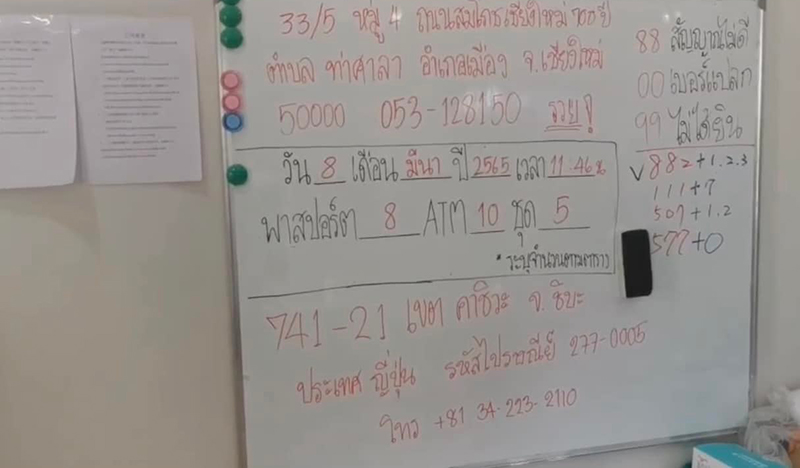 33/5 หมู่ 4 ถนนสมโภชเชียงใหม่ 700 ปี
ตำบล ท่าศาลา อำเภอเมือง จ.เชียงใหม่
50000 053-128150
วัน 8 เดือน มีนา ปี 2565 เวลา 11.46 น
พาสปอร์ต 8 ATM 10 ชุด 5
* ระบุจำนวนตามตาราง
741-21 เขต คาชิวะ จ.ชิบะ
ประเทศ ญี่ปุ่น รหัสไปรษณีย์ 277-0005
โทร +81 34-223-2110
88 สัญญาณไม่ดี
00 เบอร์แปลก
99 ไม่ได้ยิน
882+1.2.3
111+7
507+1.2
577+0